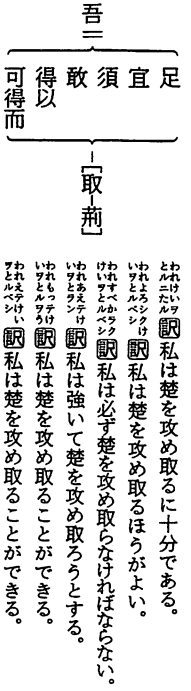 吾＝
足
宜
須
敢
得以
可得而
―[取―荊]
われけいヲとルニたル 訳 私は楚を攻め取るに十分である。
われよろシクけいヲとルベシ 訳 私は楚を攻め取るほうがよい。
われすべかラクけいヲとルベシ 訳 私は必ず楚を攻め取らなければならない。
われあえテけいヲとラン 訳 私は強いて楚を攻め取ろうとする。
われもっテけいヲとルヲう 訳 私は楚を攻め取ることができる。
われえテけいヲとルベシ 訳 私は楚を攻め取ることができる。